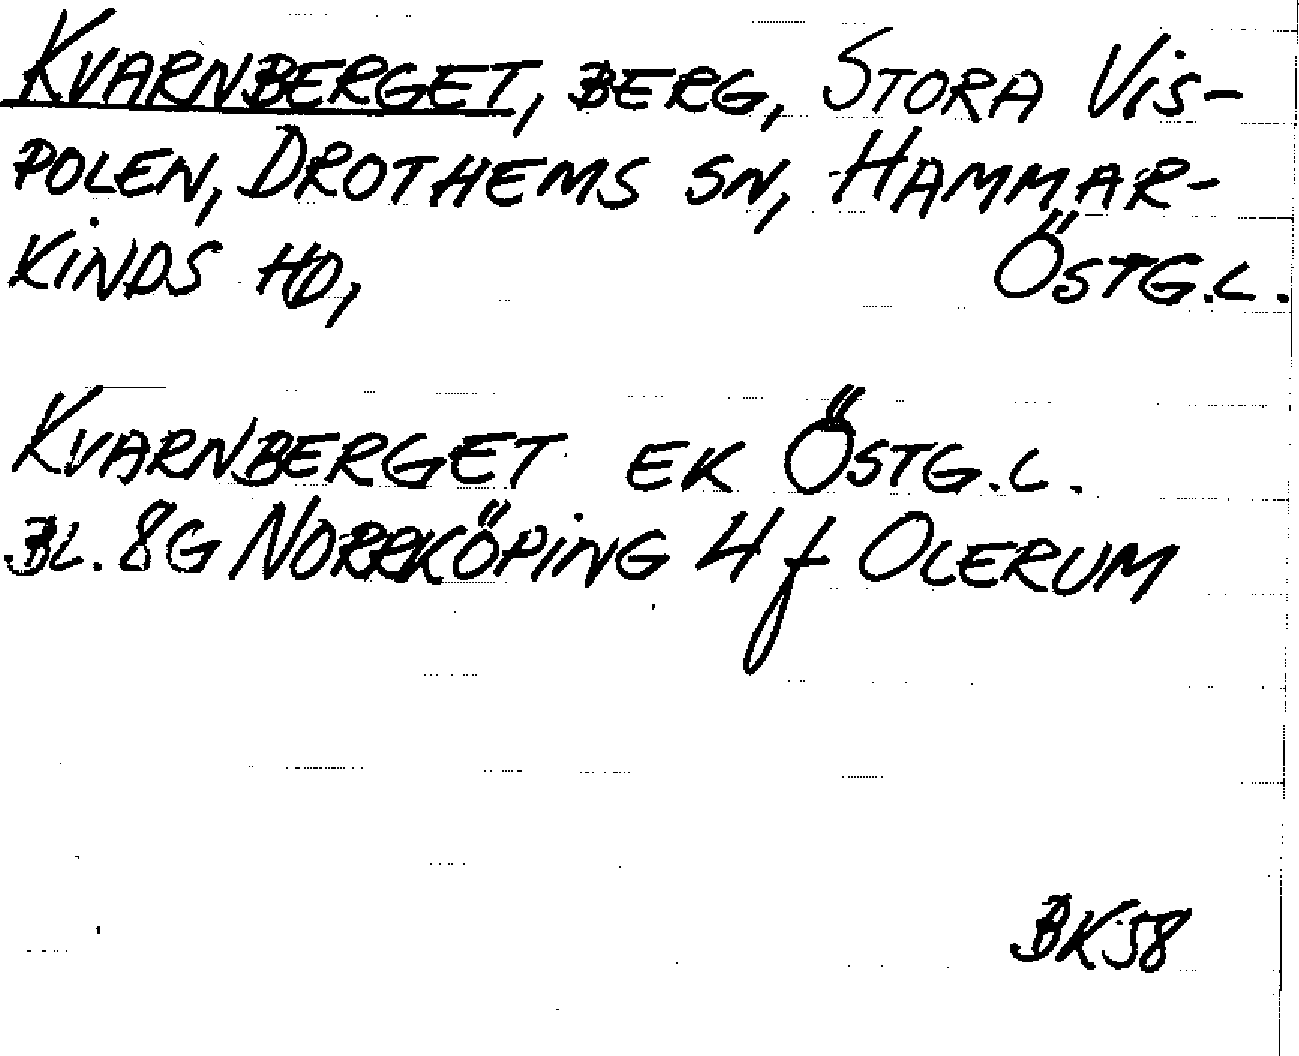 KVARNBERGET, BERG, STORA VIS-
POLEN, DROTHEMS SN, HAMMAR-
KINDS HD, ÖSTG.L.
KVARNBERGET EK ÖSTG.L.
BL. 8G NORRKÖPING 4f OLERUM
BK58